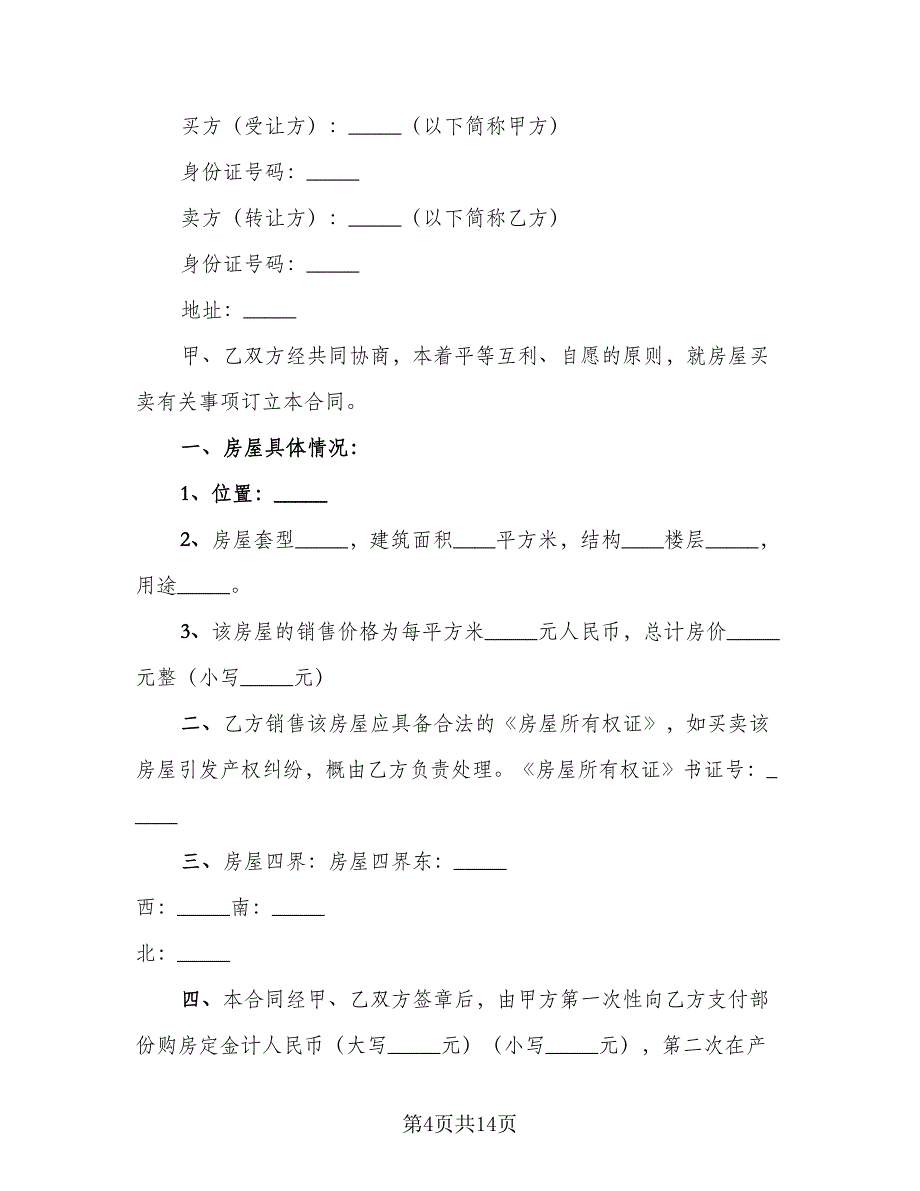 买方（受让方）：_____（以下简称甲方）
身份证号码：_____
卖方（转让方）：_____（以下简称乙方）
身份证号码：_____
地址：_____
甲、乙双方经共同协商，本着平等互利、自愿的原则，就房屋买
卖有关事项订立本合同。
一、房屋具体情况：
1、位置：_____
2、房屋套型_____，建筑面积____平方米，结构____楼层_____，
用途_____。
3、该房屋的销售价格为每平方米_____元人民币，总计房价_____
元整（小写_____元）
二、乙方销售该房屋应具备合法的《房屋所有权证》，如买卖该
房屋引发产权纠纷，概由乙方负责处理。《房屋所有权证》书证号：_
____
三、房屋四界：房屋四界东：_____
西：_____南：_____
北：_____
四、本合同经甲、乙双方签章后，由甲方第一次性向乙方支付部
份购房定金计人民币（大写_____元）（小写_____元），第二次在产
第4页共14页